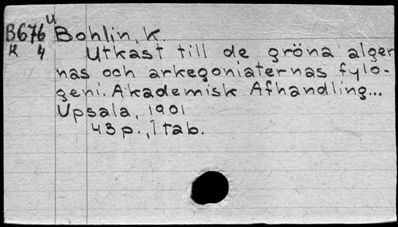 B676 u Bohlin, K.
K 4 Utkast till de gröna alger
nas och arkegoniaternas fylo-
geni. Akademisk Afhandling...
Upsala, 1901
43 p., 1 tab.